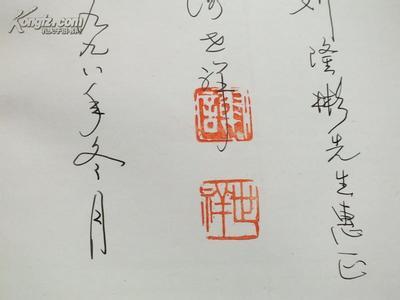 Kongfz.com
孔夫子旧书网
刘隆彬先生惠正
世祥
世祥
九九八年冬月